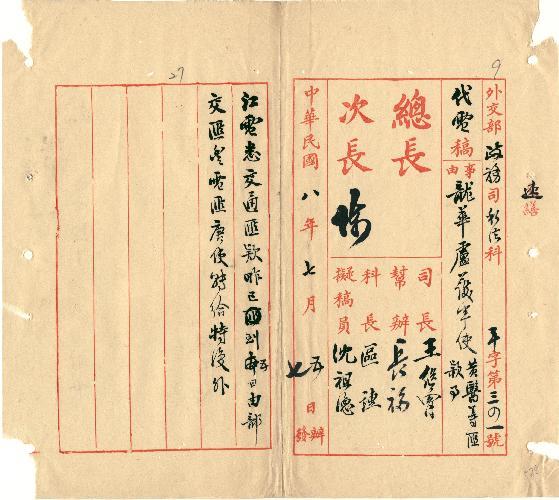 9
速繕
外交部政務司 科 字第三〇一號
代電稿
事由 龍華盧護軍使黃醫等匯款事
總長
次長
司長 王
幫辦 長福
科長 區
擬稿員 沈祖德
中華民國八年七月五日辦
七 發
27
江電悉交通匯款昨已匯到 日由部
交匯 電匯唐使轉給特復外